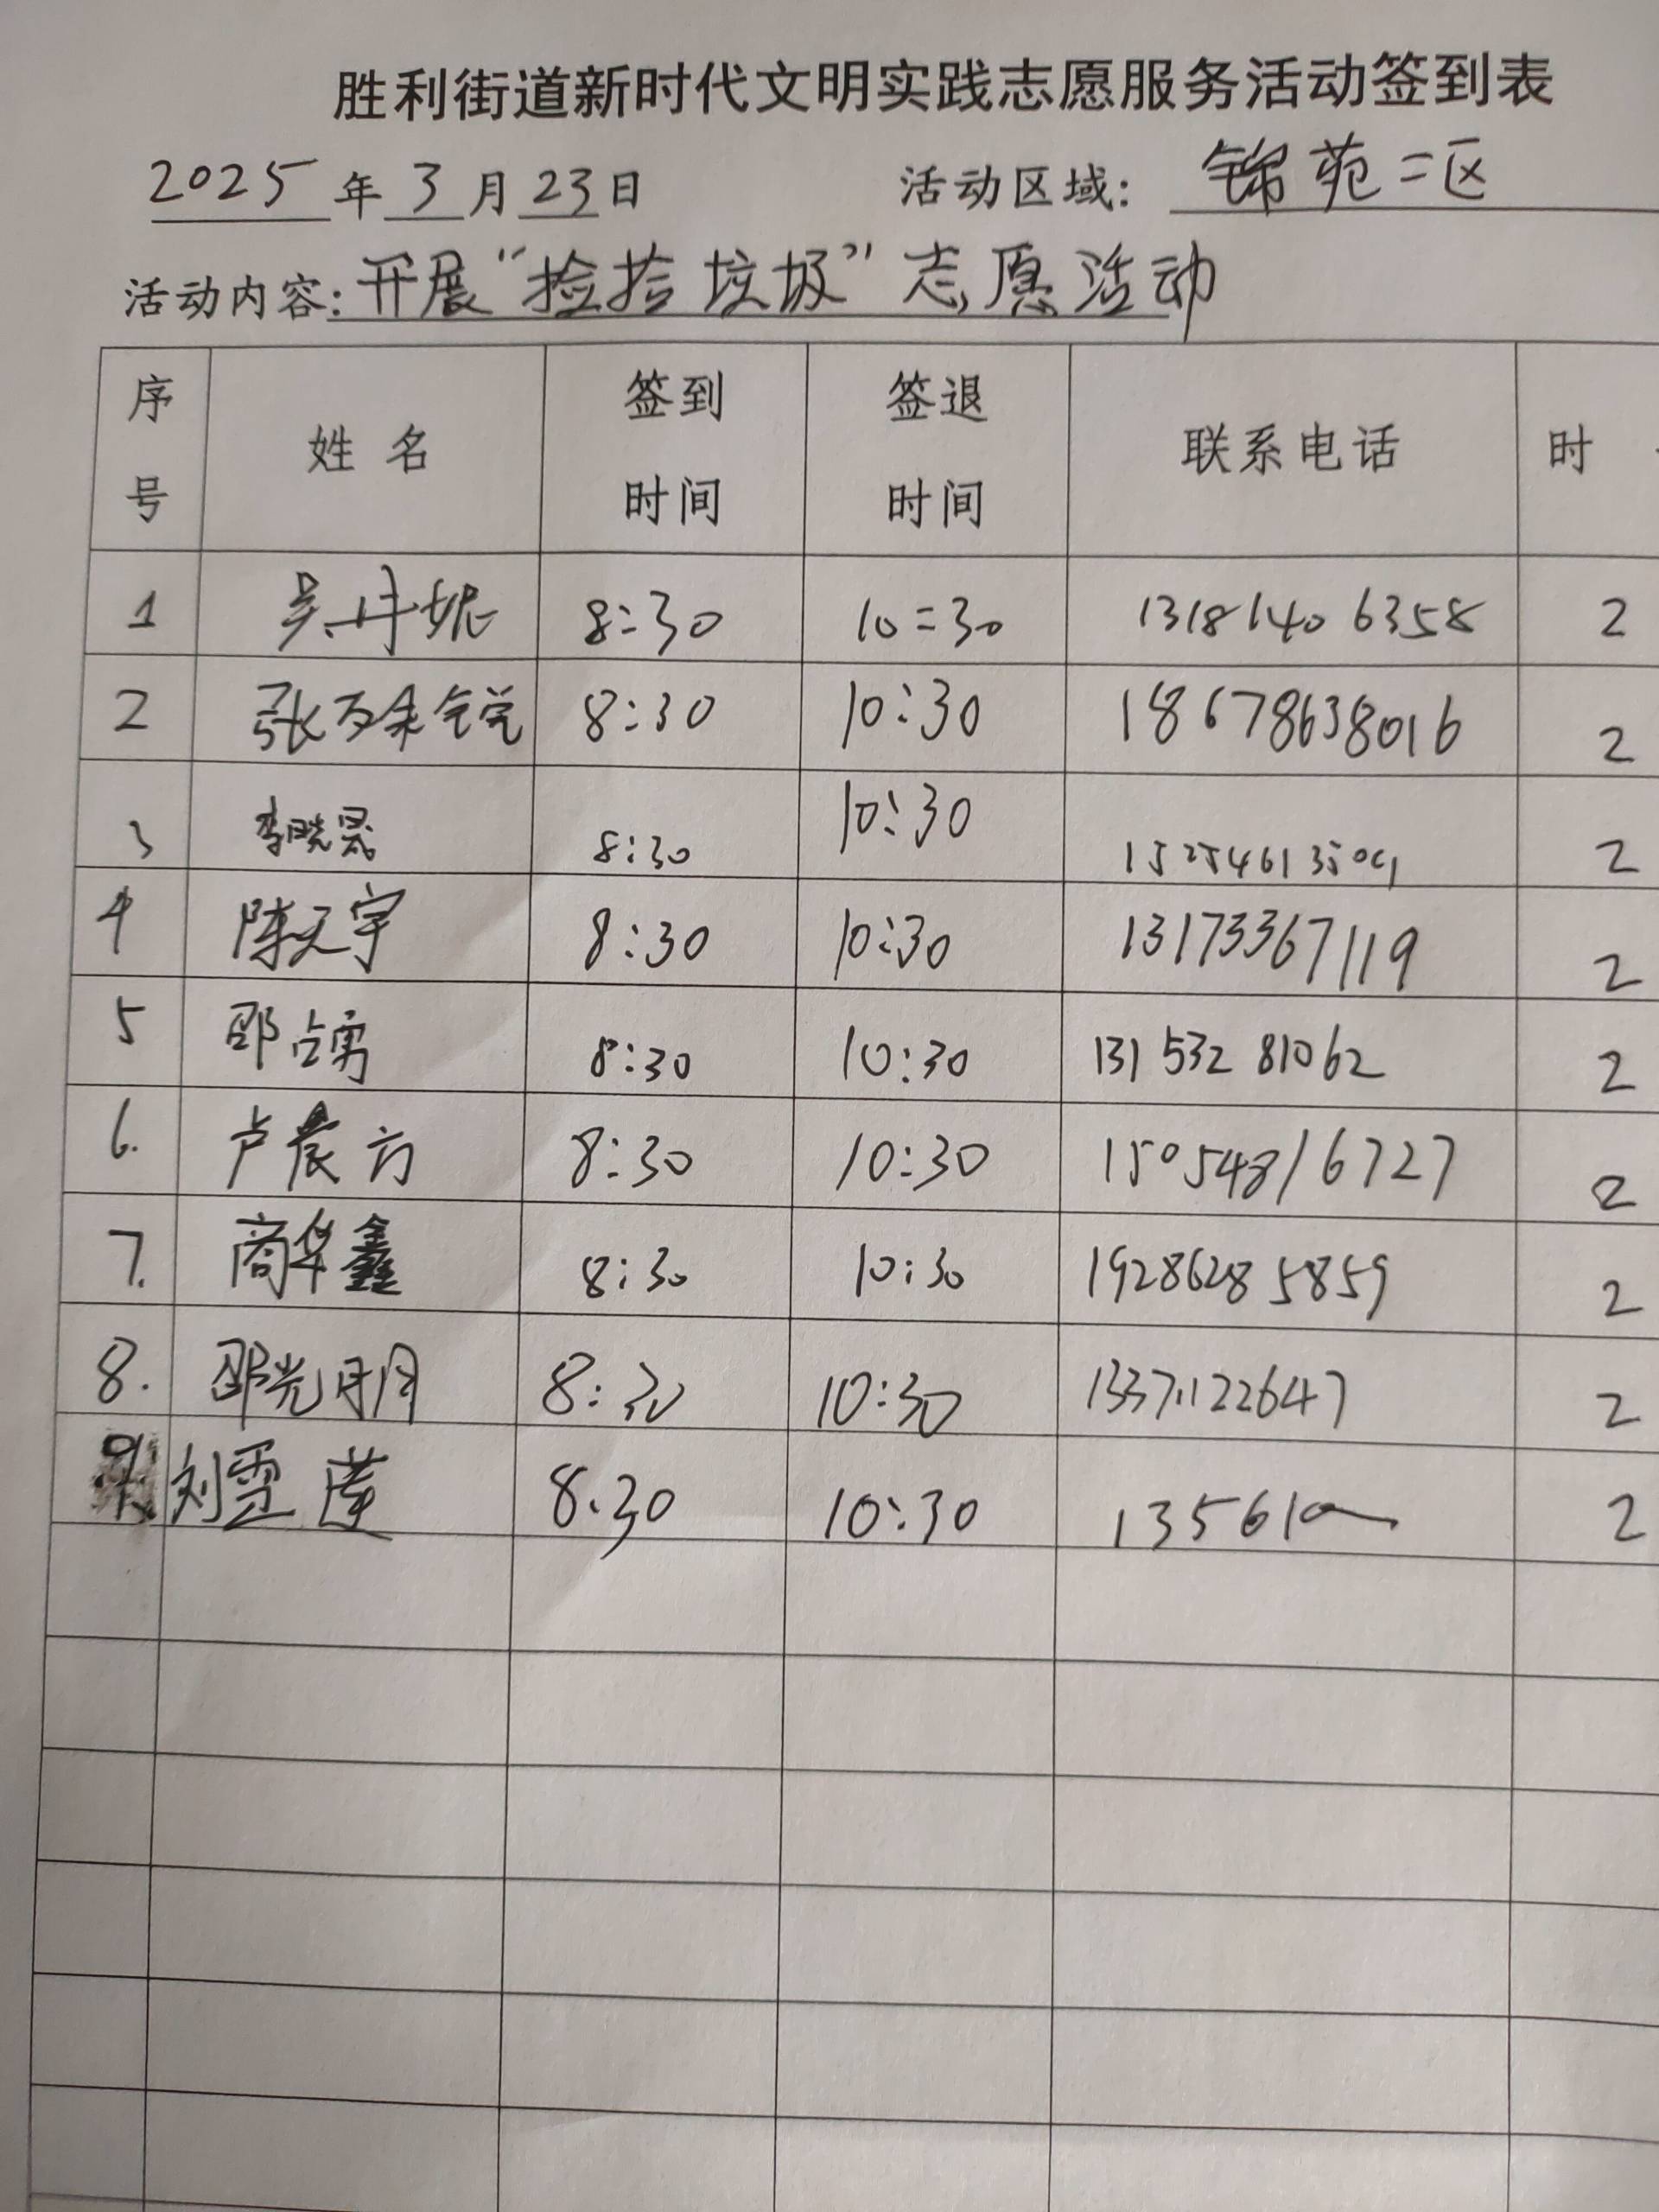 胜利街道新时代文明实践志愿服务活动签到表
2025年3月23日 活动区域：锦苑二区
活动内容：开展“捡拾垃圾”志愿活动
序号 姓名 签到时间 签退时间 联系电话 时
1 吴丹妮 8:30 10:30 13181406358 2
2 张 8:30 10:30 18678638016 2
3 李晓 8:30 10:30 15254613509 2
4 陈天宇 8:30 10:30 13173367119 2
5 邵占勇 8:30 10:30 13153281062 2
6. 卢晨方 8:30 10:30 15054816727 2
7. 商华鑫 8:30 10:30 19286285859 2
8. 邵光明 8:30 10:30 13371122647 2
9 刘雪莲 8.30 10:30 135610 2